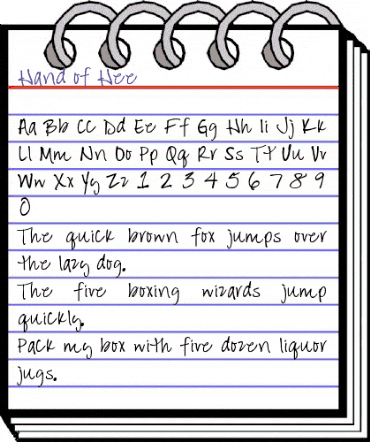 Hand of Hee
Aa Bb Cc Dd Ee Ff Gg Hh Ii Jj Kk
Ll Mm Nn Oo Pp Qq Rr Ss Tt Uu Vv
Ww Xx Yy Zz 1 2 3 4 5 6 7 8 9
0
The quick brown fox jumps over
the lazy dog.
The five boxing wizards jump
quickly.
Pack my box with five dozen liquor
jugs.